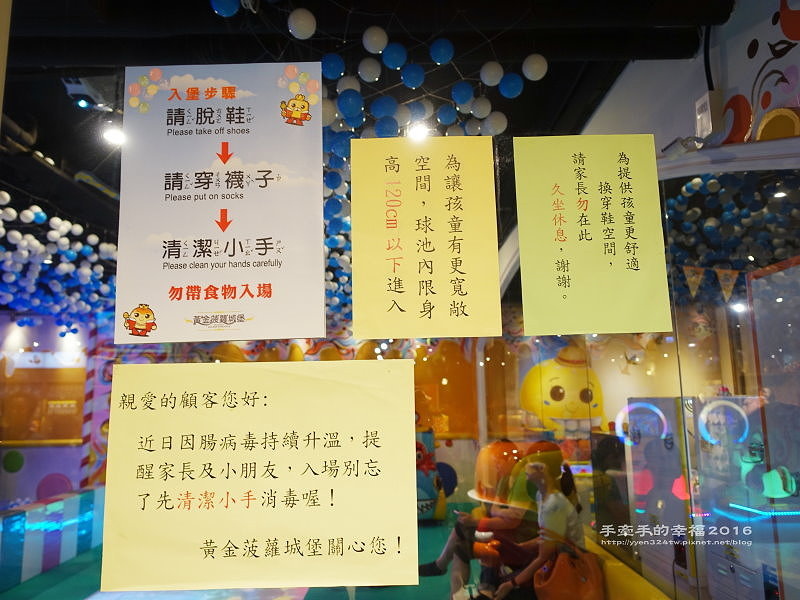 入堡步驟
請脫鞋
Please take off shoes
請穿襪子
Please put on socks
清潔小手
Please clean your hands carefully
勿帶食物入場
黃金菠蘿城堡
為讓孩童有更寬敞
空間，球池內限身
高120cm以下進入
為提供孩童更舒適
換穿鞋空間，
請家長勿在此
久坐休息，謝謝。
親愛的顧客您好：
近日因腸病毒持續升溫，提
醒家長及小朋友，入場別忘
了先清潔小手消毒喔！
黃金菠蘿城堡關心您！
手牽手的幸福2016
http://yyen324tw.pixnet.net/blog